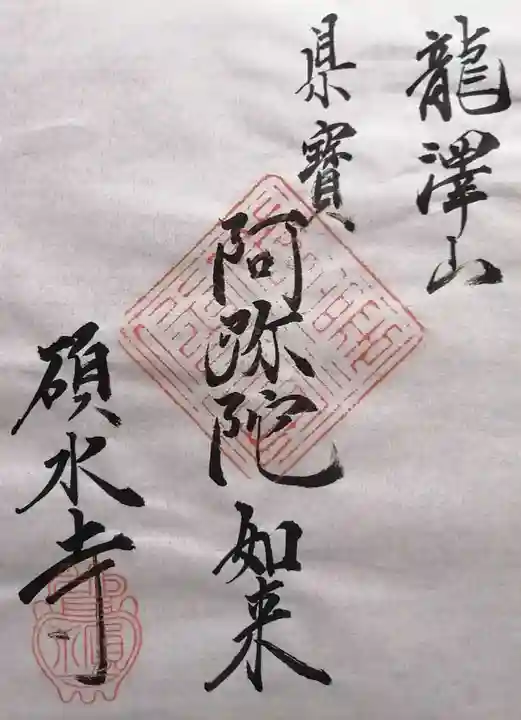 龍澤山
県寳
阿弥陀如来
碩水寺